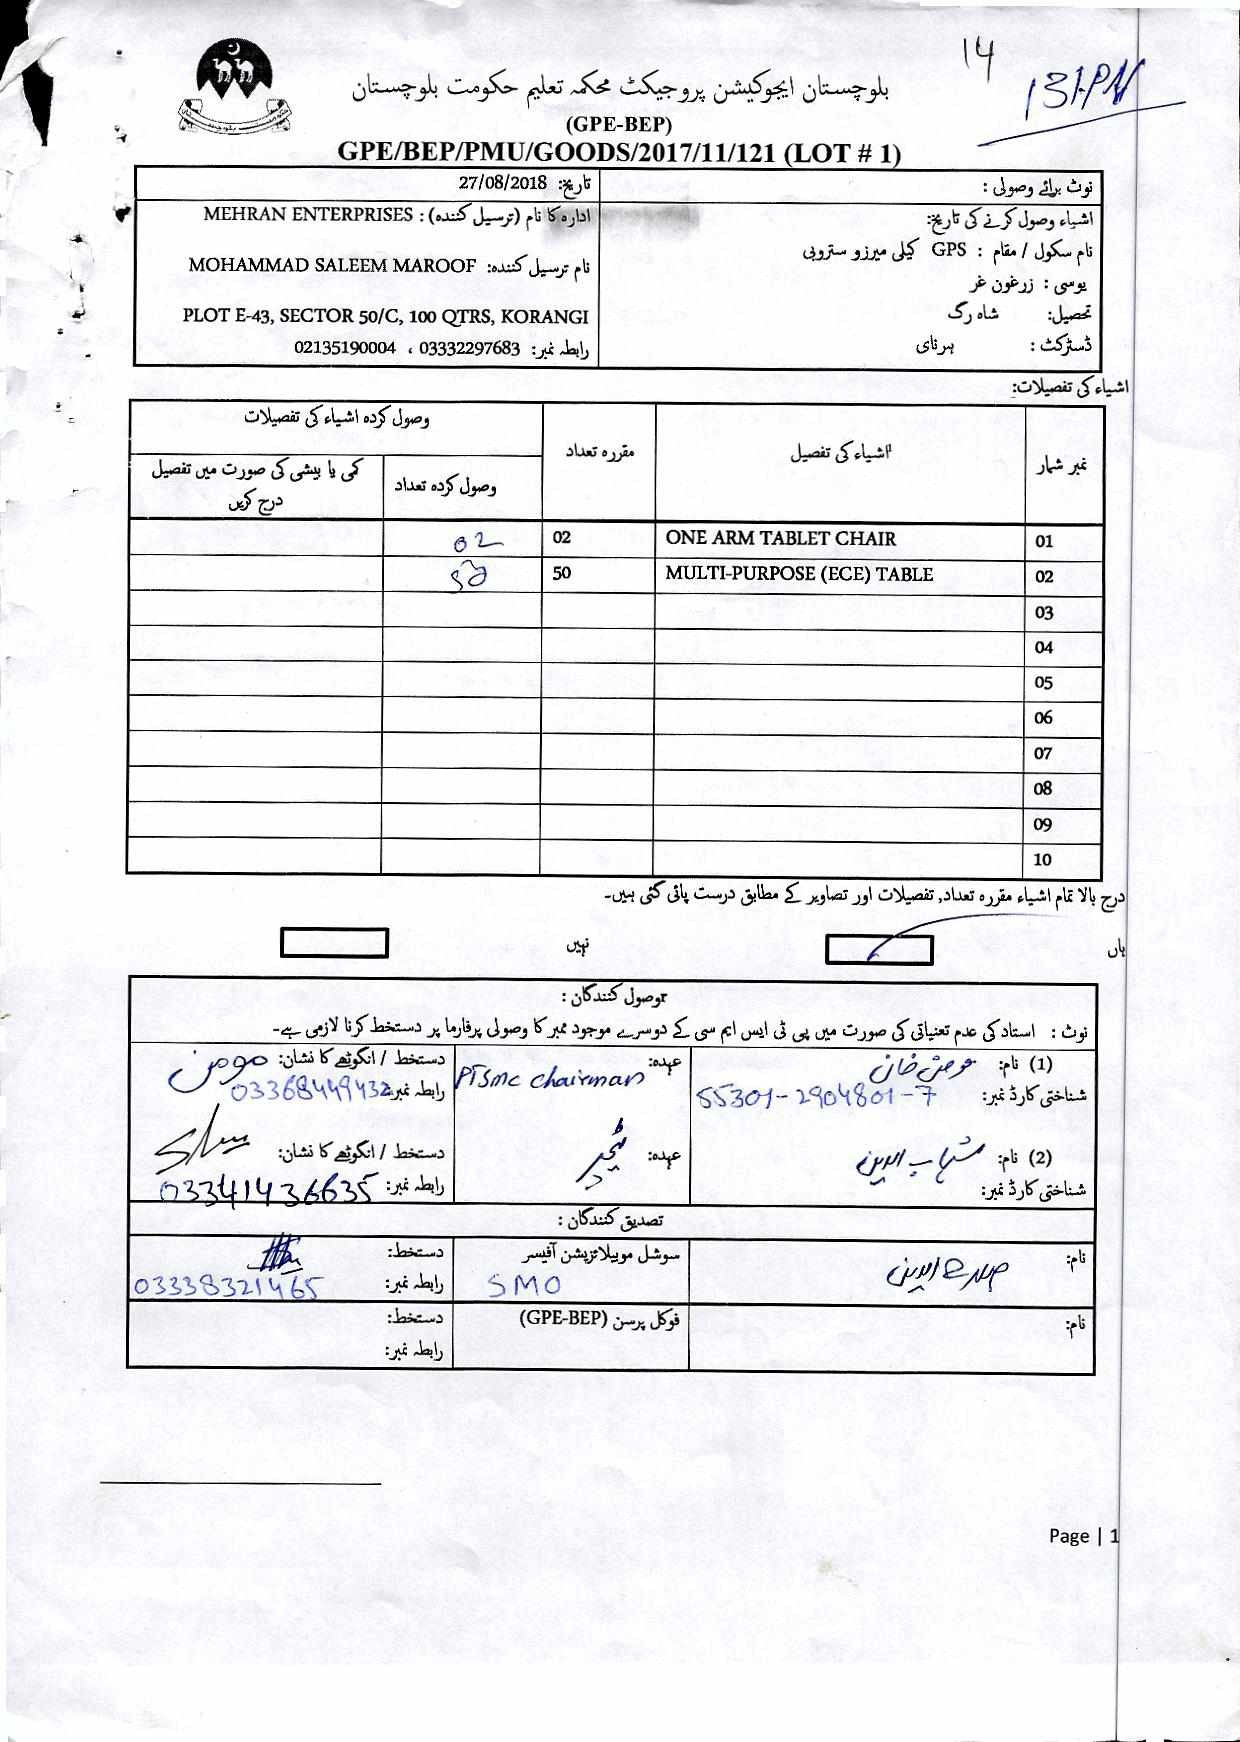 14
بلوچستان ایجوکیشن پروجیکٹ محکمہ تعلیم حکومت بلوچستان
(GPE-BEP)
GPE/BEP/PMU/GOODS/2017/11/121 (LOT # 1)
نوٹ برائے وصولی :
تاریخ: 27/08/2018
اشیاء وصول کرنے کی تاریخ:
نام سکول / مقام : GPS کیلی میرزو ستروبی
یوسی : زرغون غر
تحصیل: شاہ رگ
ڈسٹرکٹ : ہرنای
ادارہ کا نام (ترسیل کنندہ) : MEHRAN ENTERPRISES
نام ترسیل کنندہ: MOHAMMAD SALEEM MAROOF
PLOT E-43, SECTOR 50/C, 100 QTRS, KORANGI
رابطہ نمبر: 03332297683 ، 02135190004
اشیاء کی تفصیلات:
نمبر شمار اشیاء کی تفصیل مقررہ تعداد وصول کردہ اشیاء کی تفصیلات
وصول کردہ تعداد کمی یا بیشی کی صورت میں تفصیل درج کریں
01 ONE ARM TABLET CHAIR 02 02
02 MULTI-PURPOSE (ECE) TABLE 50 50
03
04
05
06
07
08
09
10
درج بالا تمام اشیاء مقررہ تعداد, تفصیلات اور تصاویر کے مطابق درست پائی گئی ہیں۔
ہاں نہیں
وصول کنندگان :
نوٹ : استاد کی عدم تعیناتی کی صورت میں پی ٹی ایس ایم سی کے دوسرے موجود ممبر کا وصولی پرفارما پر دستخط کرنا لازمی ہے۔
(1) نام: مومن خان عہدہ: PTSMC Chairman دستخط / انگوٹھے کا نشان: مومن
شناختی کارڈ نمبر: 55301-2904801-7 رابطہ نمبر: 03368449432
(2) نام: شہاب الدین عہدہ: ٹیچر دستخط / انگوٹھے کا نشان:
شناختی کارڈ نمبر: رابطہ نمبر: 03341436635
تصدیق کنندگان :
نام: سوشل موبیلائزیشن آفیسر دستخط:
SMO رابطہ نمبر: 03338321465
نام: فوکل پرسن (GPE-BEP) دستخط:
رابطہ نمبر:
Page | 1